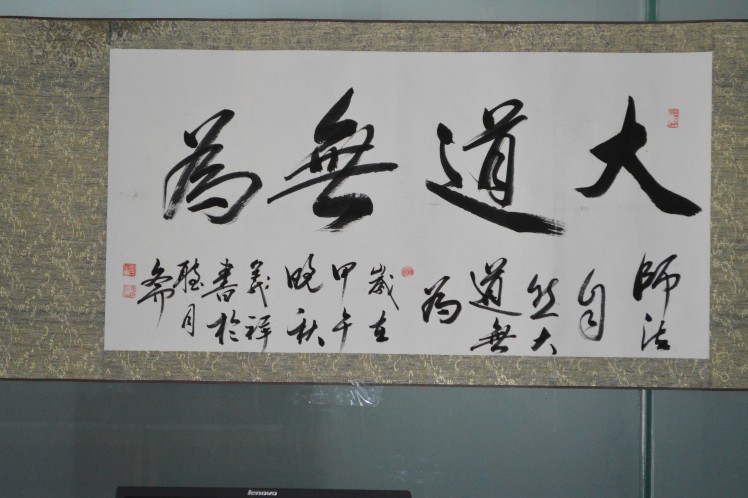 大道無為
師法
自
然大
道無
為
歲在
甲午
晚秋
義祥
書於
聽月
齋
lenovo